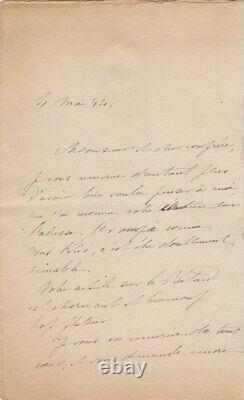 Mai 84.
Monsieur et cher confrère,
Je vous remercie d'autant plus
d'avoir bien voulu penser à moi,
que j'ai reconnu votre sur
comme
vous êtes, c'est être doublement
aimable.
Votre article sur le Bâtard
est charmant et beaucoup
trop flatteur.
Je vous en remercie de tout
cœur, et vous demande encore
© 112.com